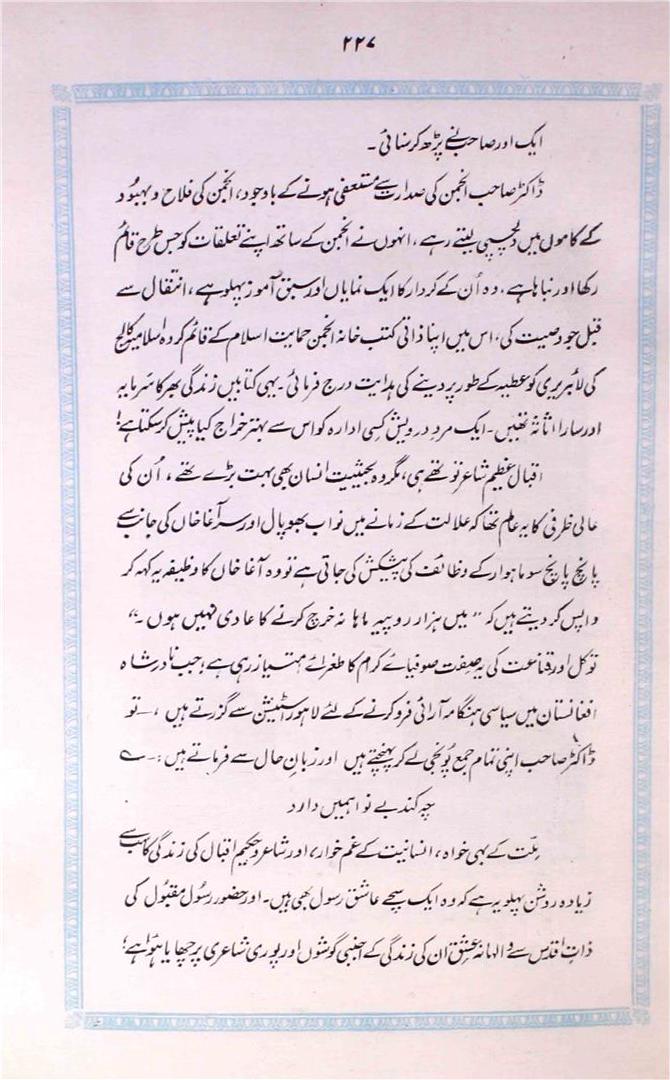 ۲۲۷
ایک اور صاحب نے پڑھ کر سنائی ۔
ڈاکٹر صاحب انجمن کی صدارت سے مستعفی ہونے کے باوجود، انجمن کی فلاح و بہبود
کے کاموں میں دلچسپی لیتے رہے، انھوں نے انجمن کے ساتھ اپنے تعلقات کو جس طرح قائم
رکھا اور نباہا ہے، وہ اُن کے کردار کا ایک نمایاں اور سبق آموز پہلو ہے، انتقال سے
قبل جو وصیت کی، اس میں اپنا ذاتی کتب خانہ انجمن حمایت اسلام کے قائم کردہ اسلامیہ کالج
کی لائبریری کو عطیہ کے طور پر دینے کی ہدایت درج فرمائی ۔ یہی کتابیں زندگی بھر کا سرمایہ
اور سارا اثاثہ تھیں ۔ ایک مردِ درویش کسی ادارہ کو اس سے بہتر خراج کیا پیش کر سکتا ہے!
اقبال عظیم شاعر تو تھے ہی، مگر وہ بحیثیت انسان بھی بہت بڑے تھے، اُن کی
عالی ظرفی کا یہ عالم تھا کہ علالت کے زمانے میں نواب بھوپال اور سر آغا خاں کی جانب سے
پانچ پانچ سو ماہوار کے وظائف کی پیشکش کی جاتی ہے تو وہ آغا خاں کا وظیفہ یہ کہہ کر
واپس کر دیتے ہیں کہ ”میں ہزار روپیہ ماہانہ خرچ کرنے کا عادی نہیں ہوں ۔“
توکل اور قناعت کی یہ صفت صوفیائے کرام کا طغرائے امتیاز رہی ہے؛ جب نادر شاہ
افغانستان میں سیاسی ہنگامہ آرائی فرو کرنے کے لئے لاہور اسٹیشن سے گزرتے ہیں، ــ تو
ڈاکٹر صاحب اپنی تمام جمع پُونجی لے کر پہنچتے ہیں اور زبانِ حال سے فرماتے ہیں :۔
چہ کند بے نوا ہمیں دارد
ملّت کے بہی خواہ، انسانیت کے غم خوار، اور شاعر و حکیم اقبال کی زندگی کا سب سے
زیادہ روشن پہلو یہ ہے کہ وہ ایک سچے عاشق رسول بھی ہیں ۔ اور حضور رسُول مقبُول کی
ذاتِ اقدس سے والہانہ عشق ان کی زندگی کے اجنبی گوشوں اور پوری شاعری پر چھایا ہوُا ہے؛